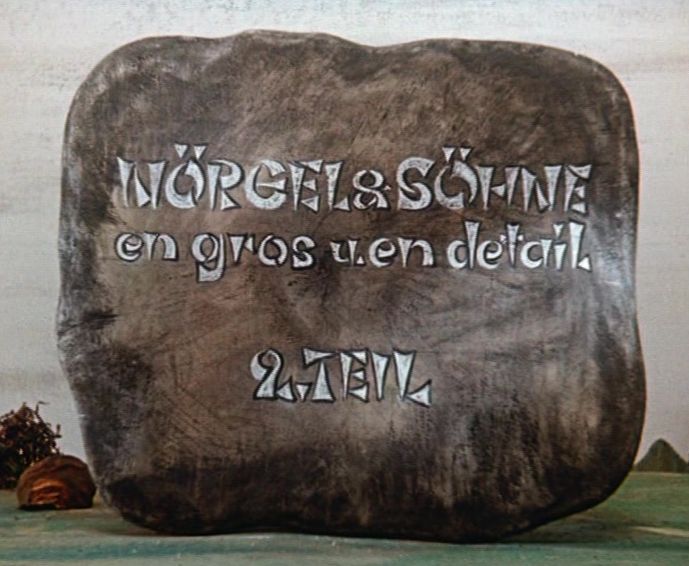 NÖRGEL & SÖHNE
en gros u. en detail
2. TEIL